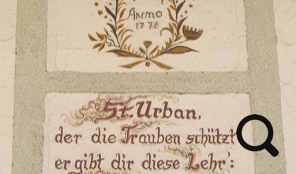 Anno
1776
St. Urban,
der die Trauben schützt
er gibt dir diese Lehr':